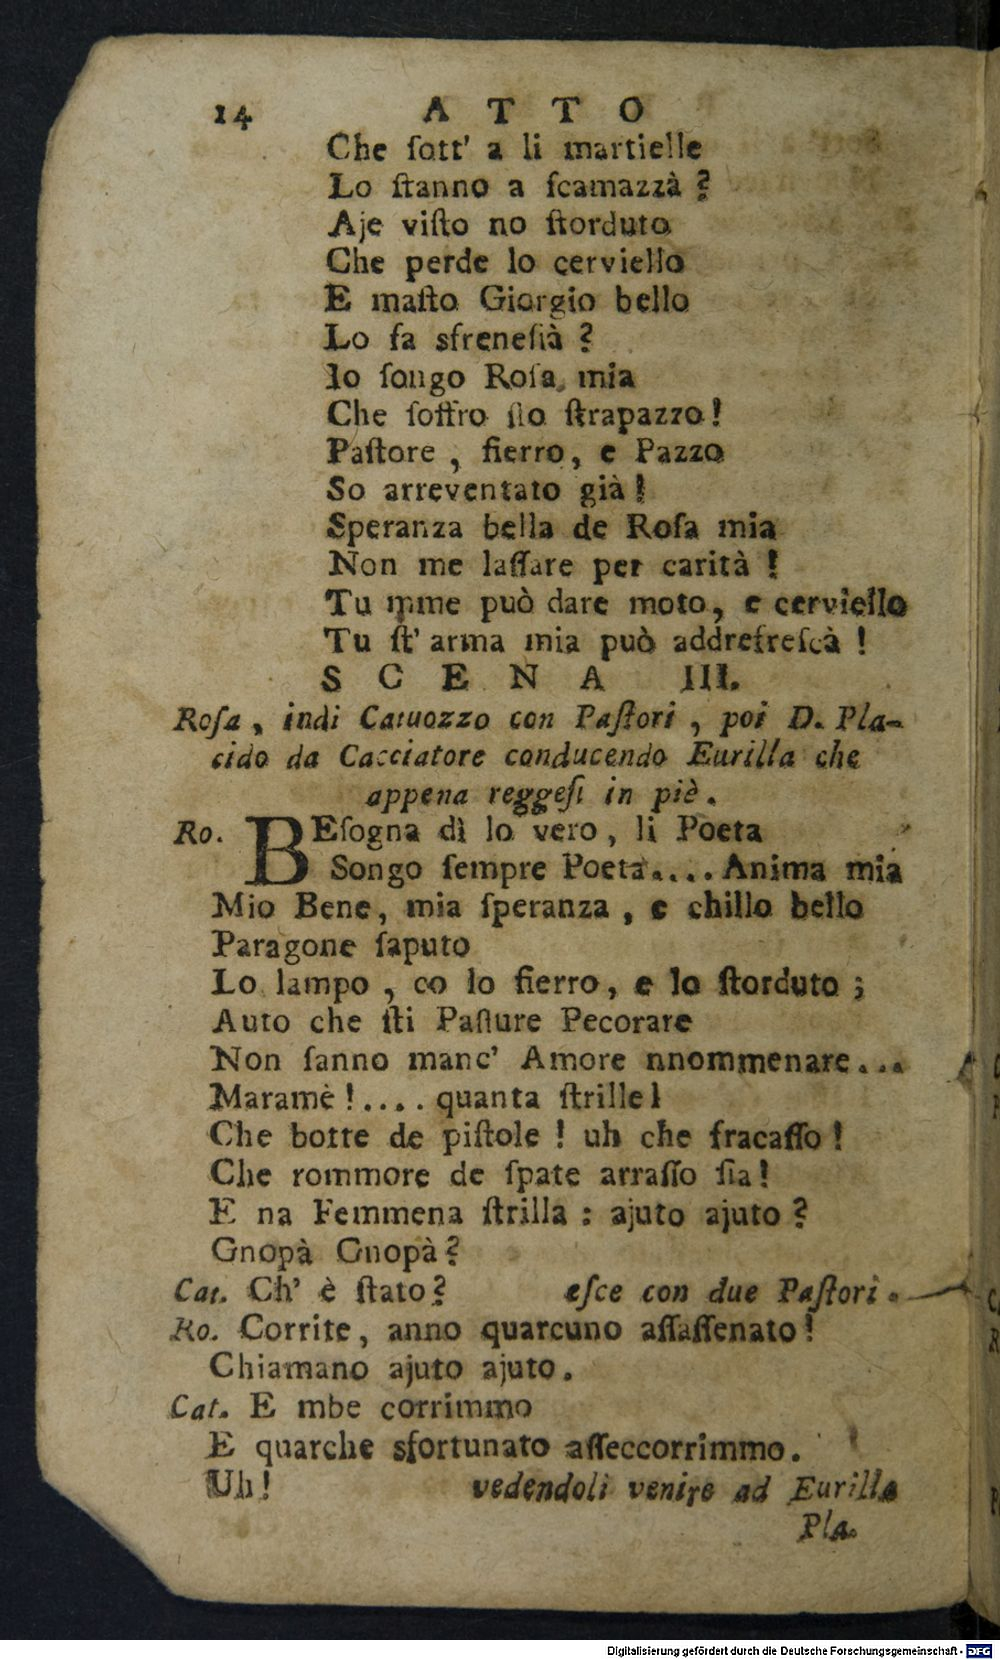 14 ATTO
Che sott' a li martielle
Lo ſtanno a ſcamazzà ?
Aje viſto no ſtorduto
Che perde lo cerviello
E maſto Giorgio bello
Lo fa sfreneſià ?
Io ſongo Roſa mia
Che ſoffro ſto ſtrapazzo !
Paſtore , fierro, e Pazzo
So arreventato già !
Speranza bella de Roſa mia
Non me laſſare per carità !
Tu mme può dare moto, e cerviello
Tu ſt' arma mia può addrefreſcà !
SCENA III.
Roſa , indi Catuozzo con Paſtori , poi D. Pla-
cido da Cacciatore conducendo Eurilla che
appena reggeſi in piè .
Ro. BEſogna dì lo vero, li Poeta
Songo ſempre Poeta.... Anima mia
Mio Bene, mia ſperanza , e chillo bello
Paragone ſaputo
Lo lampo , co lo fierro, e lo ſtorduto ;
Auto che ſti Paſture Pecorare
Non ſanno manc' Amore nnommenare...
Maramè !.... quanta ſtrille!
Che botte de piſtole ! uh che fracaſſo !
Che rommore de ſpate arraſſo ſia !
E na Femmena ſtrilla : ajuto ajuto ?
Gnopà Gnopà ?
Cat. Ch' è ſtato ? eſce con due Paſtori .
Ro. Corrite, anno quarcuno aſſaſſenato !
Chiamano ajuto ajuto.
Cat. E mbe corrimmo
E quarche sfortunato aſſeccorrimmo.
Uh ! vedendoli venire ad Eurilla
Pla.
Digitalisierung gefördert durch die Deutsche Forschungsgemeinschaft - DFG